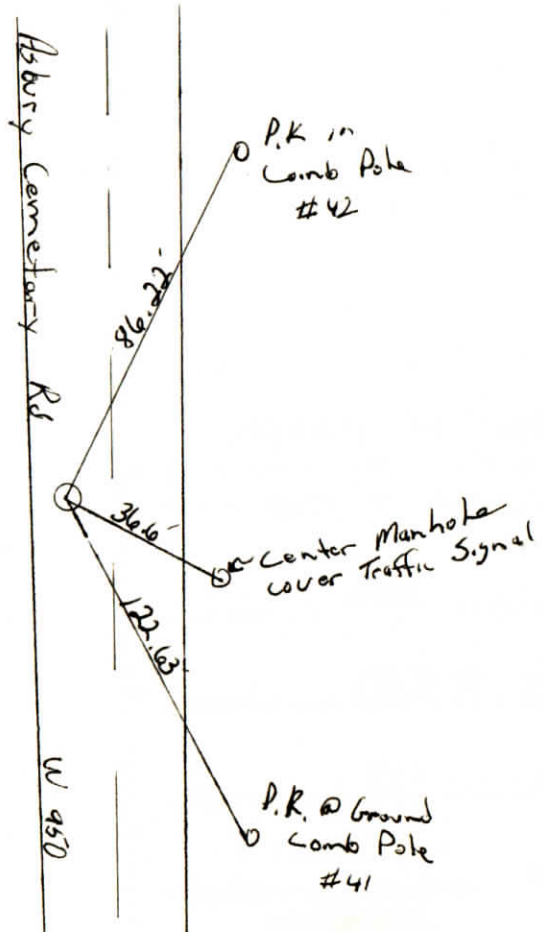 Asbury Cemetary Rd
P.K in
Comb Pole
#42
86.22'
36.6'
Center Manhole
cover Traffic Signal
122.63'
W 950
P.K. @ Ground
Comb Pole
#41